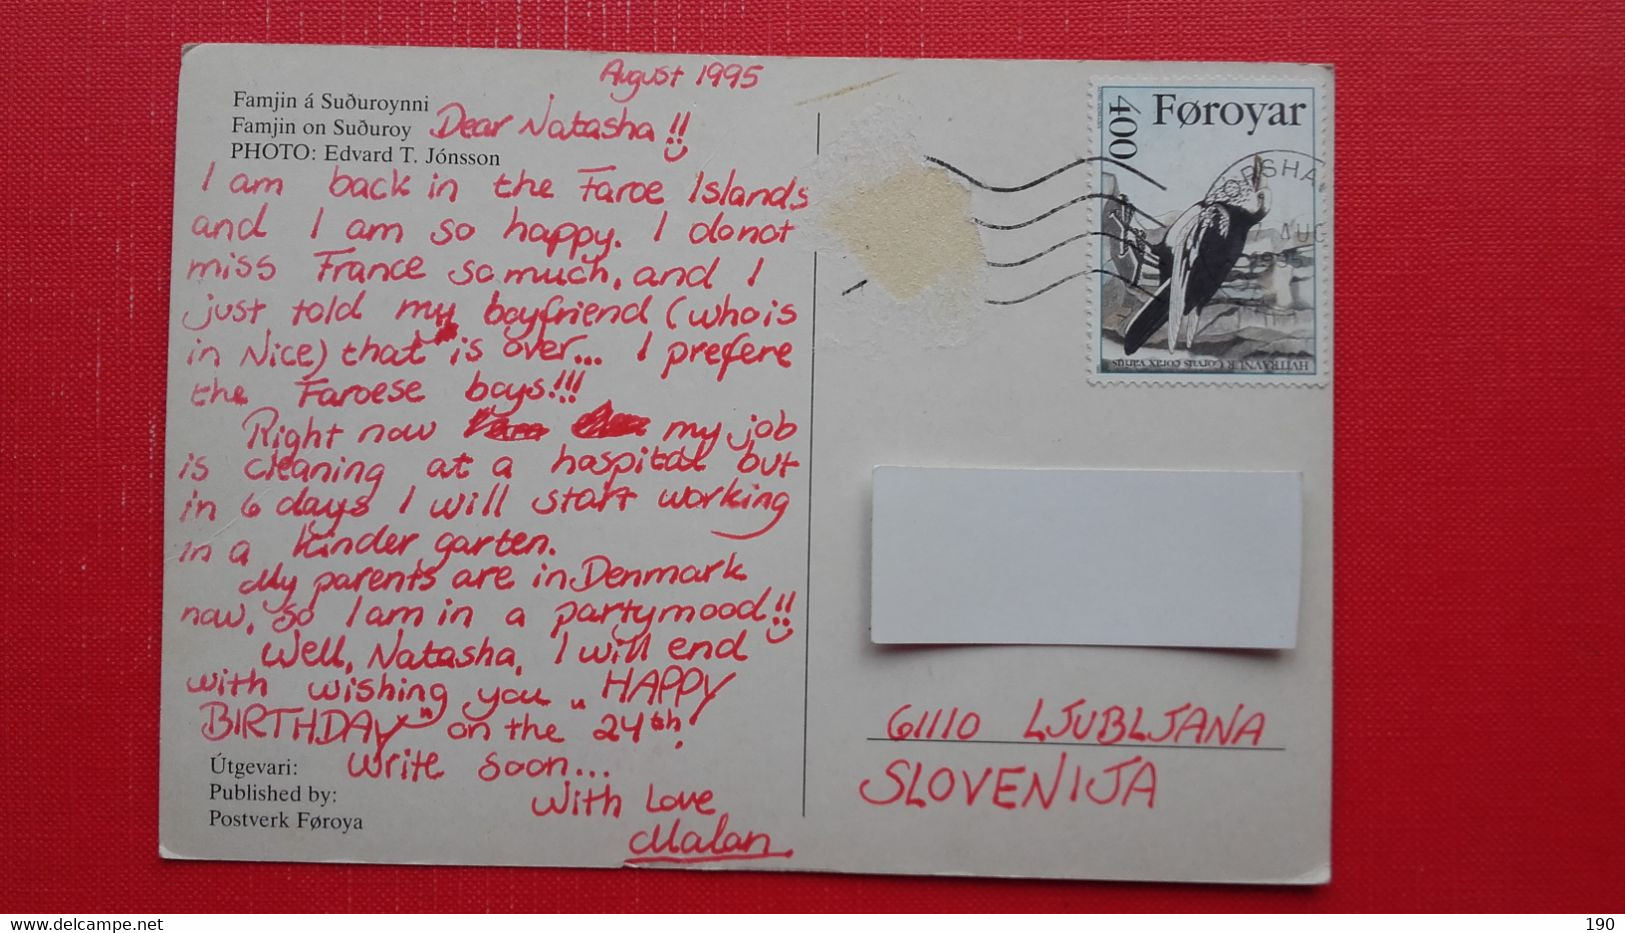 August 1995
Famjin á Suðuroynni
Famjin on Suðuroy
PHOTO: Edvard T. Jónsson
Dear Natasha!!
I am back in the Faroe Islands
and I am so happy. I do not
miss France so much, and I
just told my boyfriend (who is
in Nice) that is over... I prefere
the Faroese boys!!!
Right now my job
is cleaning at a hospital but
in 6 days I will start working
in a kinder garten.
My parents are in Denmark
now, so I am in a partymood!!
Well, Natasha, I will end
with wishing you „HAPPY
BIRTHDAY" on the 24th!
Write soon...
With Love
Malan
Útgevari:
Published by:
Postverk Føroya
Føroyar
400
HVÍTRAVNUR Corvus corax varius
AUG
1995
61110 LJUBLJANA
SLOVENIJA
delcampe.net
190